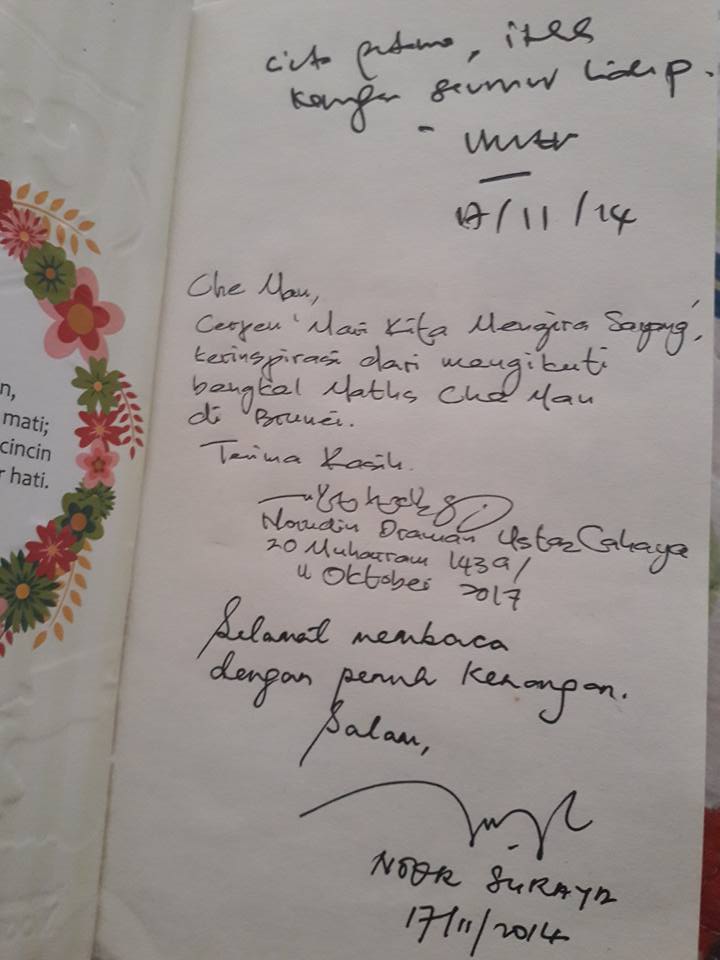 n,
mati;
cincin
hati.
kenangan seumur hidup.
17/11/14
Che Man,
Cerpen 'Mari Kita Mengira Sayang',
terinspirasi dari mengikuti
bengkel Maths Che Man
di Brunei.
Terima Kasih.
Norudin Draman Ustaz Cahaya
20 Muharram 1439/
11 Oktober 2017
Selamat membaca
dengan penuh kenangan.
Salam,
NOOR SURAYA
17/11/2014